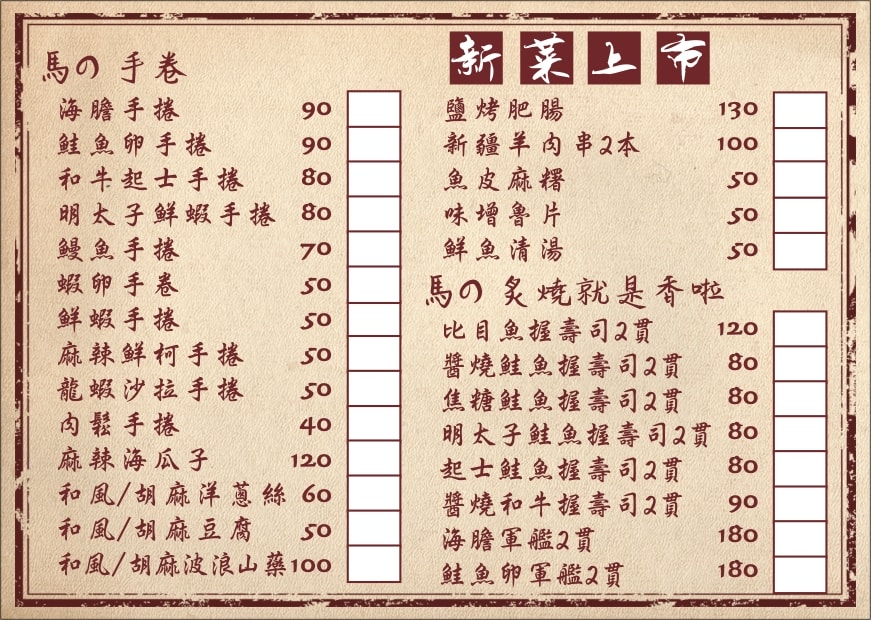 馬の 手卷
海膽手捲 90
鮭魚卵手捲 90
和牛起士手捲 80
明太子鮮蝦手捲 80
鰻魚手捲 70
蝦卵手卷 50
鮮蝦手捲 50
麻辣鮮柯手捲 50
龍蝦沙拉手捲 50
肉鬆手捲 40
麻辣海瓜子 120
和風/胡麻洋蔥絲 60
和風/胡麻豆腐 50
和風/胡麻波浪山藥 100
新菜上市
鹽烤肥腸 130
新疆羊肉串2本 100
魚皮麻糬 50
味增魯片 50
鮮魚清湯 50
馬の 炙燒就是香啦
比目魚握壽司2貫 120
醬燒鮭魚握壽司2貫 80
焦糖鮭魚握壽司2貫 80
明太子鮭魚握壽司2貫 80
起士鮭魚握壽司2貫 80
醬燒和牛握壽司2貫 90
海膽軍艦2貫 180
鮭魚卵軍艦2貫 180